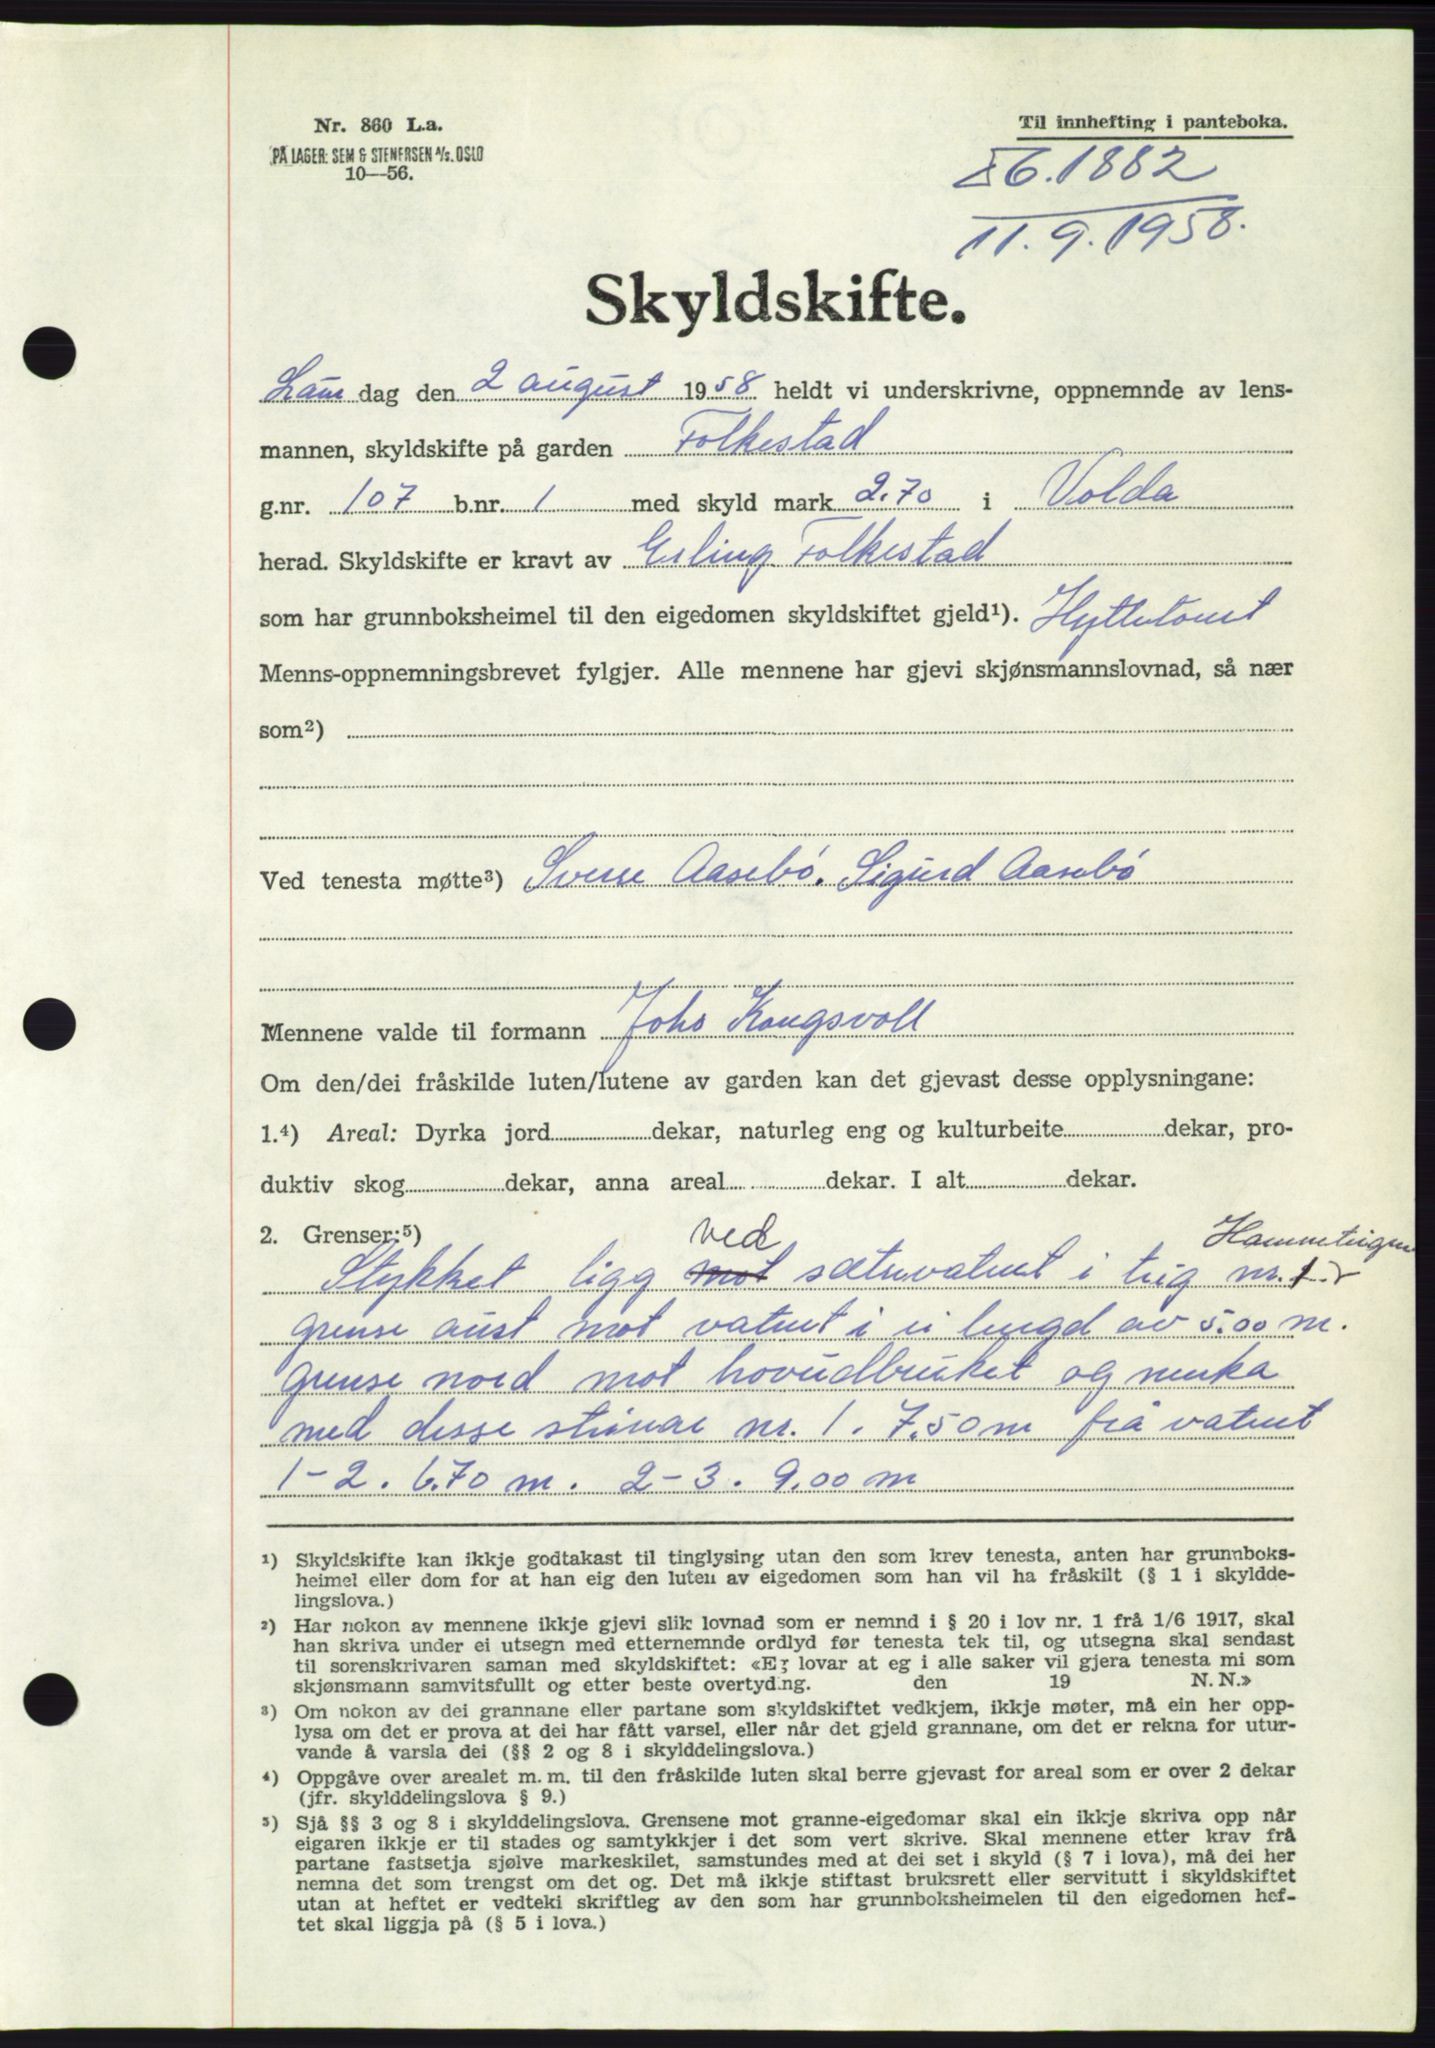 Nr. 860 L.a.
PÅ LAGER: SEM & STENERSEN A/S. OSLO
10—56.
Til innhefting i panteboka.
1882
11.9.1958.
Skyldskifte.
Laur dag den 2 august 1958 heldt vi underskrivne, oppnemnde av lens-
mannen, skyldskifte på garden Folkestad
g.nr. 107 b.nr. 1 med skyld mark 2.70 i Volda
herad. Skyldskifte er kravt av Erling Folkestad
som har grunnboksheimel til den eigedomen skyldskiftet gjeld¹). Hyttetomt
Menns-oppnemningsbrevet fylgjer. Alle mennene har gjevi skjønsmannslovnad, så nær
som²)
Ved tenesta møtte³) Sverre Aasebø. Sigurd Aasebø
Mennene valde til formann Joho Kongsvoll
Om den/dei fråskilde luten/lutene av garden kan det gjevast desse opplysningane:
1.⁴) Areal: Dyrka jord dekar, naturleg eng og kulturbeite dekar, pro-
duktiv skog dekar, anna areal dekar. I alt dekar.
2. Grenser:⁵) ved
Stykket ligg mot sætrevatnet i teig nr. 1
grense aust mot vatnet i ei lengd av 5.00 m.
grense nord mot hovudbruket og merka
med desse steinar nr. 1. 7.50 m frå vatnet
1-2. 6.70 m. 2-3. 9.00 m
¹) Skyldskifte kan ikkje godtakast til tinglysing utan den som krev tenesta, anten har grunnboks-
heimel eller dom for at han eig den luten av eigedomen som han vil ha fråskilt (§ 1 i skyldde-
lingslova.)
²) Har nokon av mennene ikkje gjevi slik lovnad som er nemnd i § 20 i lov nr. 1 frå 1/6 1917, skal
han skriva under ei utsegn med etternemnde ordlyd før tenesta tek til, og utsegna skal sendast
til sorenskrivaren saman med skyldskiftet: «Eg lovar at eg i alle saker vil gjera tenesta mi som
skjønsmann samvitsfullt og etter beste overtyding. den 19 N. N.»
³) Om nokon av dei grannane eller partane som skyldskiftet vedkjem, ikkje møter, må ein her opp-
lysa om det er prova at dei har fått varsel, eller når det gjeld grannane, om det er rekna for utur-
vande å varsla dei (§§ 2 og 8 i skylddelingslova.)
⁴) Oppgåve over arealet m. m. til den fråskilde luten skal berre gjevast for areal som er over 2 dekar
(jfr. skylddelingslova § 9.)
⁵) Sjå §§ 3 og 8 i skylddelingslova. Grensene mot granne-eigedomar skal ein ikkje skriva opp når
eigaren ikkje er til stades og samtykkjer i det som vert skrive. Skal mennene etter krav frå
partane fastsetja sjølve markeskilet, samstundes med at dei set i skyld (§ 7 i lova), må dei her
nemna det som trengst om det og. Det må ikkje stiftast bruksrett eller servitutt i skyldskiftet
utan at heftet er vedteki skriftleg av den som har grunnboksheimelen til den eigedomen hef-
tet skal liggja på (§ 5 i lova.)